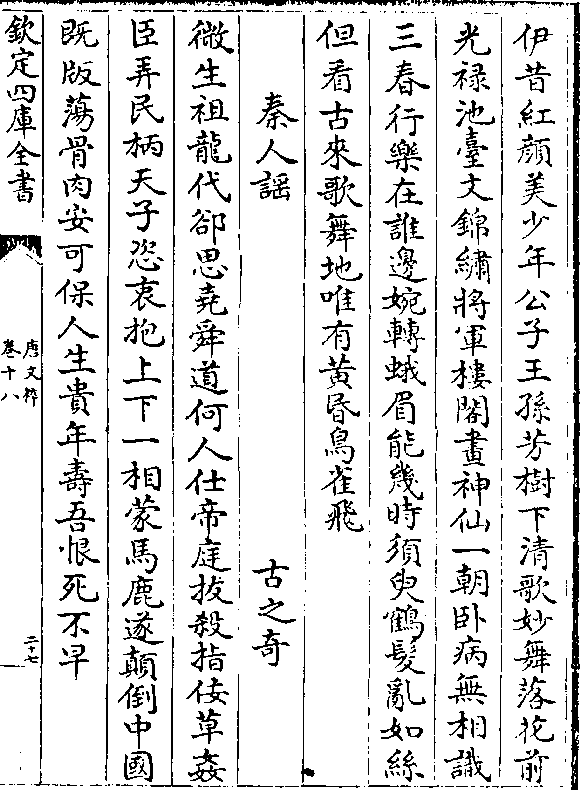 伊昔紅顔美少年公子王孫芳樹下清歌妙舞落花前
光禄池臺文錦繡將軍樓閣畫神仙一朝卧病無相識
三春行樂在誰邊婉轉蛾眉能幾時須臾鶴髪亂如絲
但看古來歌舞地唯有黄昏鳥雀飛
秦人謡 古之奇
微生祖龍代卻思堯舜道何人仕帝庭拔殺指佞草姦
臣弄民柄天子恣衷抱上下一相蒙馬鹿遂顛倒中國
既版蕩骨肉安可保人生貴年壽吾恨死不早
欽定四庫全書
唐文粹
卷十八
二十七